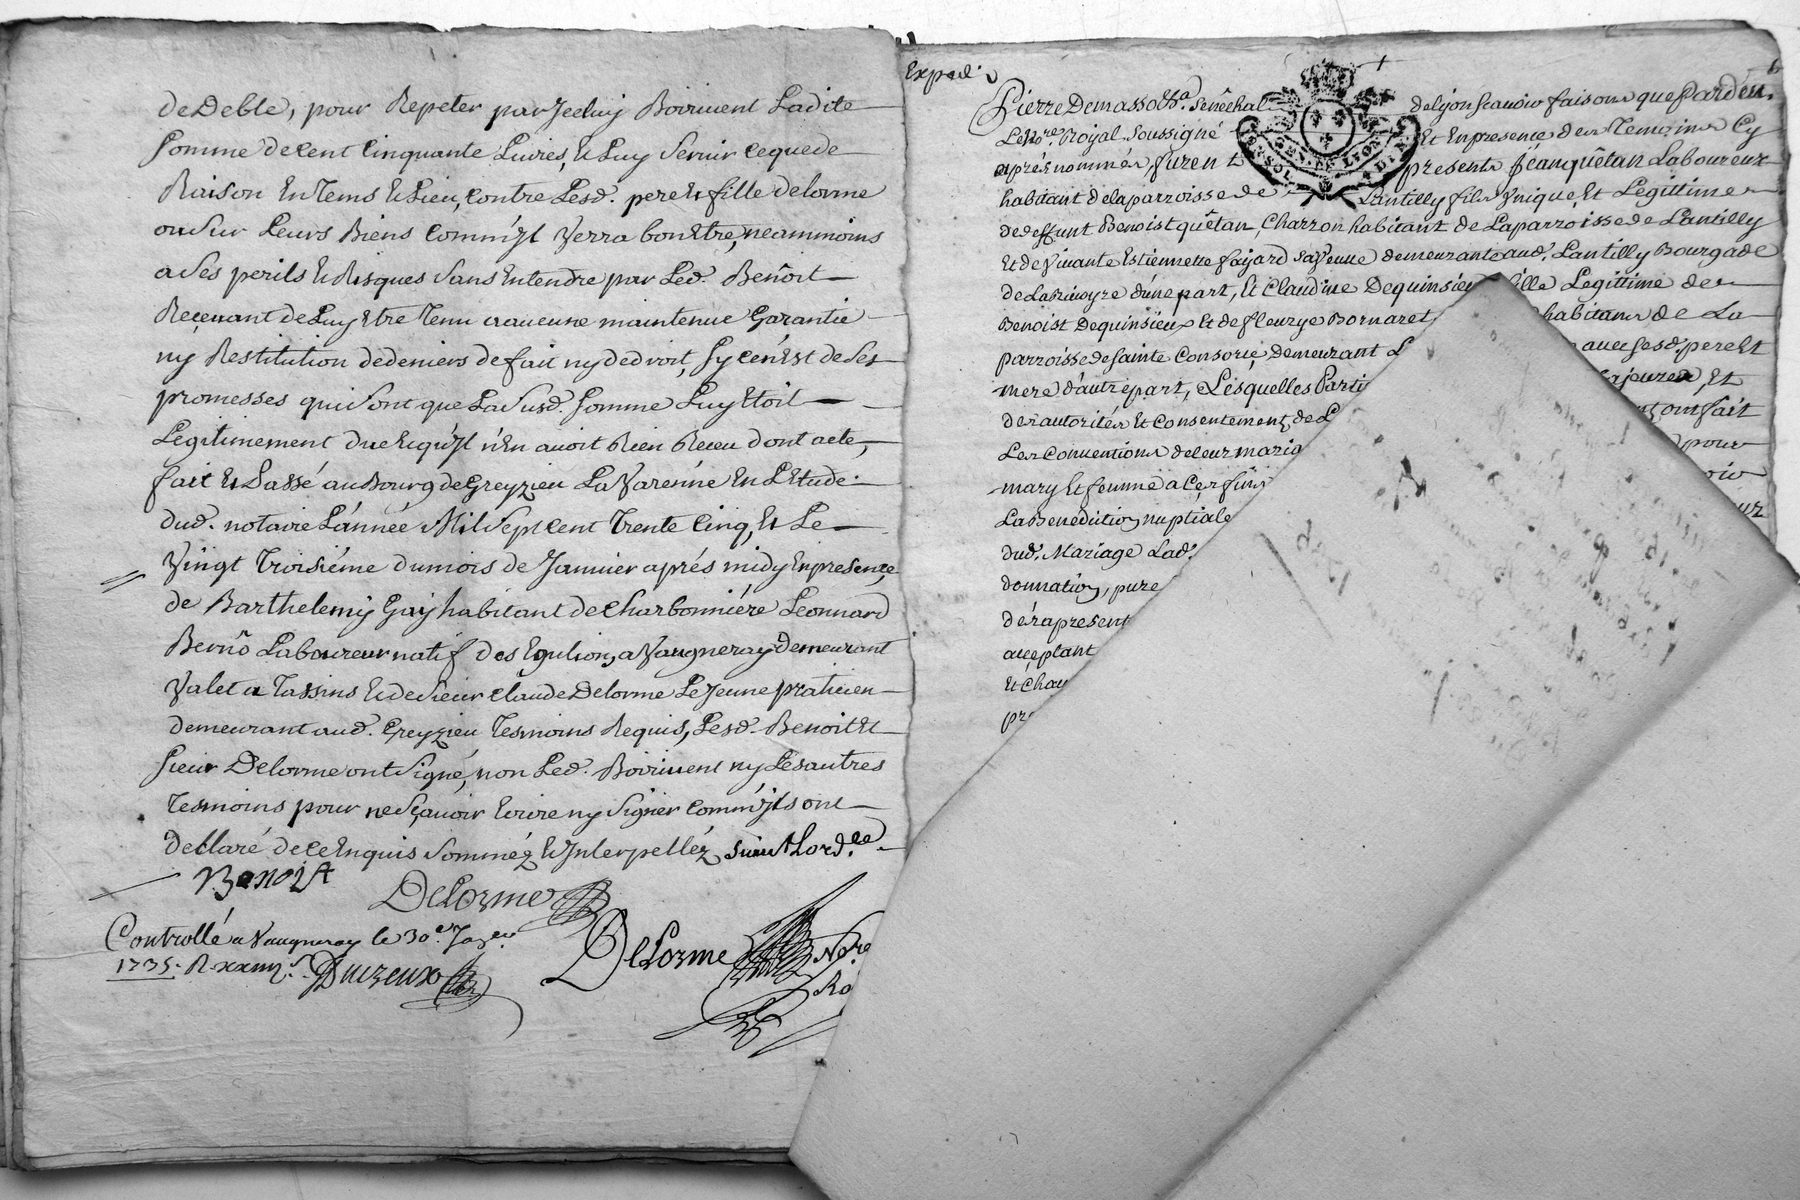 de Deble, pour Repeter par Jceluy Boiriuent Ladite
somme de cent Cinquante Liures, et Luy Seruir ce que de
Raison En Tems et Lieu, contre Lesd. pere et fille delorme
ou sur Leurs Biens Comm'jl Verra bon Etre, neammoins
a ses perils et Risques sans Entendre par Led. Benoit
Receuant de Luy Etre Tenu a aucune maintenue Garantie
ny Restitution de deniers de fait ny de droit, sy ce n'Est de ses
promesses qui sont que La Susd. somme Luy Etoit
Legitimement due et qu'jl n'En auoit Rien Receu dont acte,
fait et Passé au Bourg de Greyzieu La Varenne En L'Etude
dud. notaire L'année Mil Sept Cent Trente Cinq, et Le
Vingt Troisiéme du mois de Januier aprés midy En presence
de Barthelemy Gay habitant de Charbonniére Leonnard
Laboureur natif des a Vaugneray demeurant
Valet a Tassins et de Sieur Claude Delorme Le Jeune praticien
demeurant aud. Greyzieu Tesmoins Requis, Lesd. Benoit et
Sieur Delorme ont Signé, non Led. Boiriuent ny Les autres
Tesmoins pour ne sçauoir Ecrire ny Signer comm'jls ont
declaré de ce Enquis Sommez et Jnterpellez suiu.t Lord.ce
Benoit
Delorme
Controllé a Vaugneray le 30.e
1735. R.
Delorme No.re
Ro
Exped.
Pierre Demasso Senechal de Lyon scauoir faisons que Pardeu.
Le No.re Royal Soussigné Et En presence des Temoins Cy
aprés nommés, furent presents Jean quêtan Laboureux
habitant de la parroisse de Lantilly fils Vnique, Et Legittime
de deffunt Benoist quêtan, Charron habitant de La parroisse de Lantilly
Et de Viuante Estiennette fayard sa Veuue demeurante aud. Lantilly Bourgade
de d'une part, Et Claudine Dequinsieu fille Legittime de
Benoist Dequinsieux Et de fleurye Bornaret habitans de La
parroisse de Sainte Consorce demeurant auec sesd. pere Et
mere d'autre part, Lesquelles Parti Et
des autorités Et Consentement de L ont fait
Les Conuentions de leur maria pour
mary Et femme a
La Benediction nuptiale
dud. Mariage Lad.
donnation, pure
dés apresent
acceptant
Et
pr